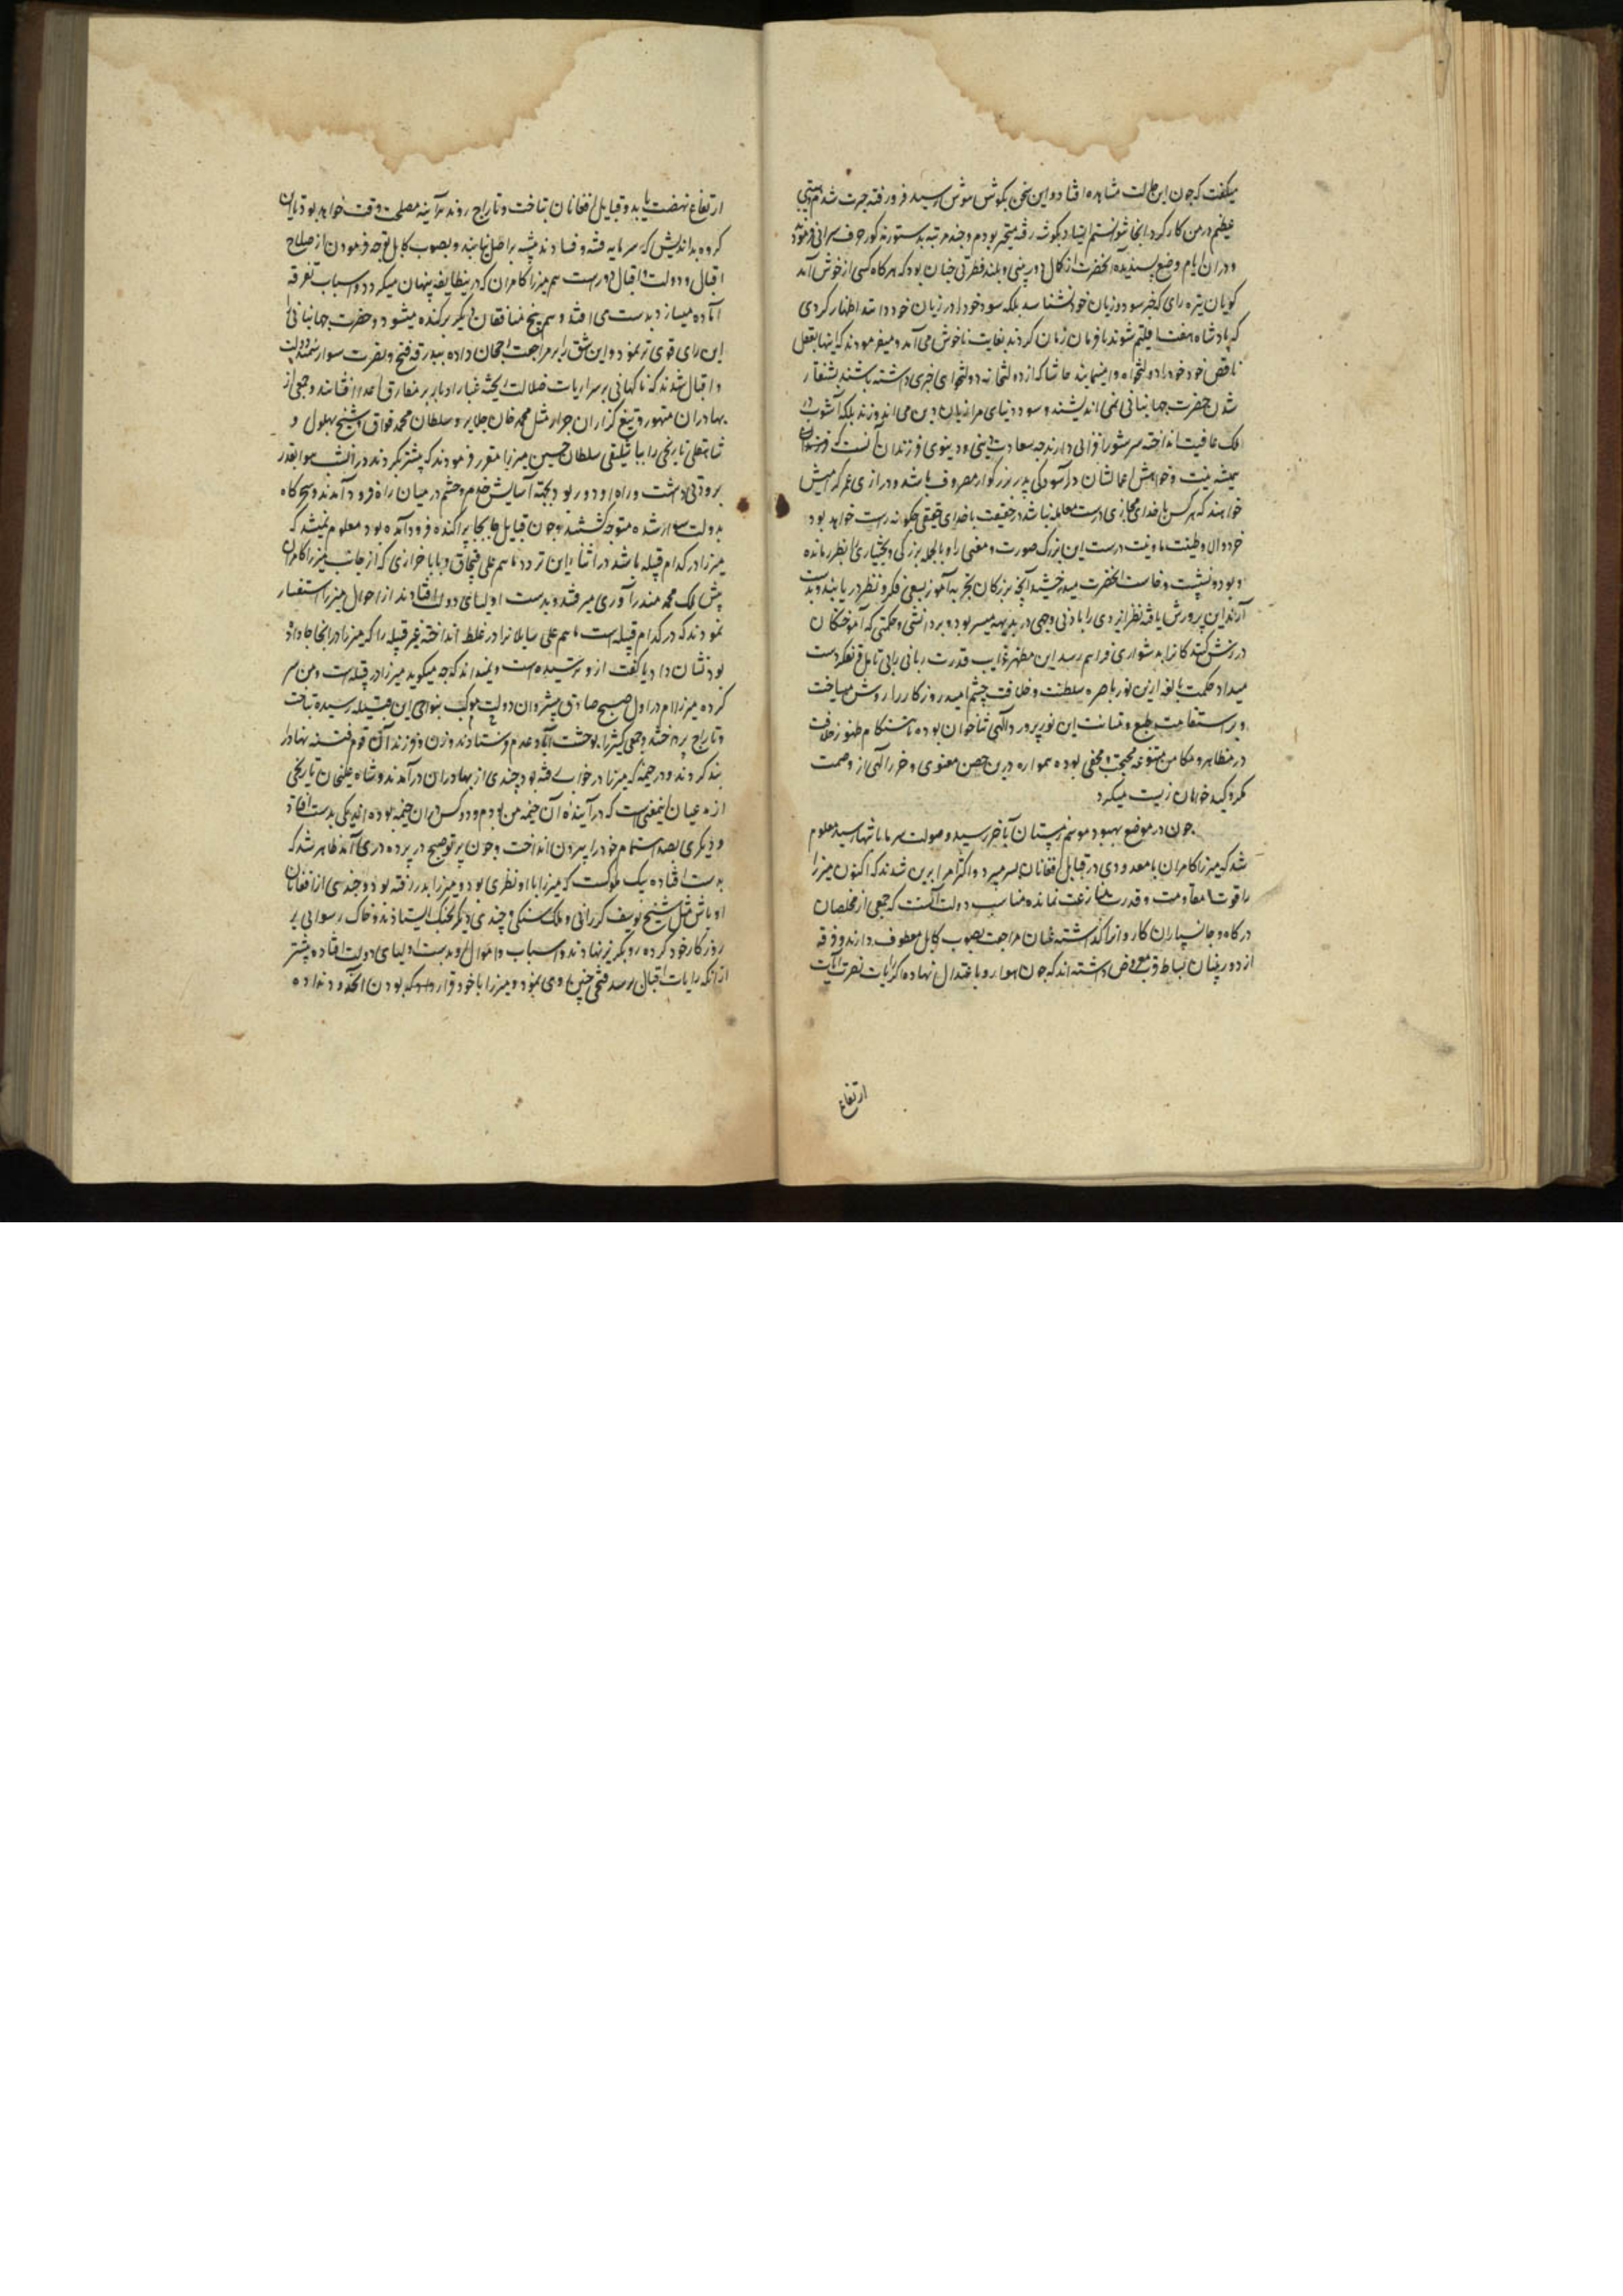 میکفت که چون این حالت مشاهده افتاد و این سخن بکوش هوش رسید فرو رفته حیرت شدم و هیبتی
عظیم در من کار کرد انجا نتوانستم ایستاد بکوشه رفته متحیر بودم و چند مرتبه بدستور مذکور حرف سرائی فرمود
و دران ایام وضع پسندیده انحضرت از کمال دوربینی و بلند فطرتی چنان بود که هرکاه کسی از خوش آمد
کویان تیره رای که خبر سود و زیان خود نشناسد بلکه سود خود را در زیان خود داند اظهار کردی
که پادشاه هفت اقلیم شوند یا فرمان زمان کردند بغایت ناخوش می آمد و میفرمودند که اینها بعقل
ناقص خود خود را دولتخواه وا مینمایند حاشا که از دولتخانه دولتخواهی خبری داشته باشند
شدن حضرت جهانبانی نمی اندیشند و سود دنیای مرا زیان دین می اندوزند بلکه آشوب در
ملک عافیت انداخته سر شورافزائی دارند چه سعادت دینی و دنیوی فرزندان آنست که
همیشه نیت و خواهش اعمالشان در آسودکی پدر بزرکوار مصروف باشد و درازی عمر کرامیش
خواهند که هرکس با خدای مجازی درست معامله نباشد در حقیقت با خدای حقیقی چکونه راست خواهد بود
خرد والا و طینت و نیت درست این بزرک صورت و معنی را و بالجمله بزرکی و بختیاری از نظر مانده
و بود و نشست و خاست انحضرت میدرخشید آنچه بزرکان تجربه آموز بسعی فکر و نظر دریابند و بدست
آرند این پرورش یافته نظر ایزدی را بادنی وجهی در بدیهه میسر بود و هر دانشی و حکمتی که آموختکان
درسش کتدکانرا بدشواری فراهم رسد این مظهر غرایب قدرت ربانی را بی تامل و تفکر دست
میداد حکمت بالغه ازین نور باصره سلطنت و خلافت چشم امید روزکار را روشن میساخت
و بر استقامت طبع و متانت این نورپرورد الهی ثناخوان بوده تا هنکام ظهور خلافت
در مظاهر و مکامن متنوعه محتجب و مخفی بوده همواره درین حصن معنوی و حرز الهی از وصمت
مکر و کید خواهان زیست میکرد
چون در موضع بهبود موسم زمستان بآخر رسید و صولت سرما بانتها رسید معلوم
شد که میرزا کامران با معدودی در قبایل افغانان بسر میبرد و اکثر امرا برین شدند که اکنون میرزا
را قوت مقاومت و قدرت منازعت نمانده مناسب دولت آنست که جمعی از مخلصان
درکاه و جانسپاران کاروانرا کذاشته عنان مراجعت بصوب کابل معطوف دارند و فرقه
از دوربینان بساط قرب معروض داشته اند که چون هوا رو باعتدال نهاده اکر رایات نصرت آیات
ارتفاع
ارتفاع نهضت یابد و قبایل افغانان بتاخت و تاراج روند هرآینه مصلحت وقت خواهد بود تا این
کروه بداندیش که سرمایه فتنه و فسادند پیشه براصل نیابند و بصوب کابل توجه فرمودن از صلاح
اقبال و دولت و اقبال دورست هم میرزا کامران که درینطایفه پنهان میکردد و اسباب تفرقه
آماده میسازد بدست می افتد و هم بیخ منافقان دیکر برکنده میشود و حضرت جهانبانی را
این رای قوی تر نمود و این شق را بر مراجعت رجحان داده ببدرقه فتح و نصرت سوار سمند دولت
و اقبال شدند که ناکهانی بر سر ارباب ضلالت ریخته غبار ادبار بر مفارق اعدا افشانند و جمعی از
بهادران متهور و تیغ کزاران جرار مثل محمد خان جلایر و سلطان محمد فواق و شیخ بهلول و
شاهقلی نارنجی را بباشلیقی سلطان حسین میرزا مقرر فرمودند که پیشتر بکردند در آن شب هوا بقدر
برودتی داشت و راه او دور بود بجهة آسایش خدم و حشم در میان راه فرود آمدند و سحرکاه
بدولت سوار شده متوجه کشتند و چون قبایل جابجا پراکنده فرود آمده بود معلوم نمیشد که
میرزا در کدام قبیله باشد در اثناء این تردد ماهم علی قبچاق و بابا خزاری که از جانب میرزا کامران
پیش ملک محمد مندراوری میرفتند بدست اولیای دولت افتادند از احوال میرزا استفسار
نمودند که در کدام قبیله است ماهم علی سایلانرا در غلط انداخته غیر قبیله را که میرزا در انجا جا داشت
بود نشان داد بابا کفت او ترسیده است و نمیداند که چه میکوید میرزا در قبیله است و من سر
کرده میبرم در اول صبح صادق پیشروان دولت موکب بنواحی این قبیله رسیده بتاخت
و تاراج پرداختند و جمعی کثیرا بوحشت آباد عدم فرستادند و زن و فرزند آن قوم فتنه نهاد را
بند کردند و در خیمه که میرزا در خواب رفته بود چندی از بهادران درآمدند و شاه علیخان نارنجی
از مدعیان اینمعنی است که در آینده آن خیمه من بودم و دو کس در ان خیمه بوده اند یکی بدست افتاد
و دیکری بصد اهتمام خود را بیرون انداخت و چون پرتو صبح در پرده دری آمد ظاهر شد که
بدست افتاده بیک ملوکست که میرزا با او نظری بود و میرزا بدر رفته بود و چندی از افغانان
اوباش مثل شیخ یوسف کررانی و ملک سنکی و چندی دیکر بجنک ایستادند و خاک رسوائی بر
روزکار خود کرده رو بکریز نهادند و اسباب و اموال او بدست اولیای دولت افتاده پیشتر
از انکه رایات اقبال برسد فتحی چنین روی نمود و میرزا با خود قرار داد که بودن